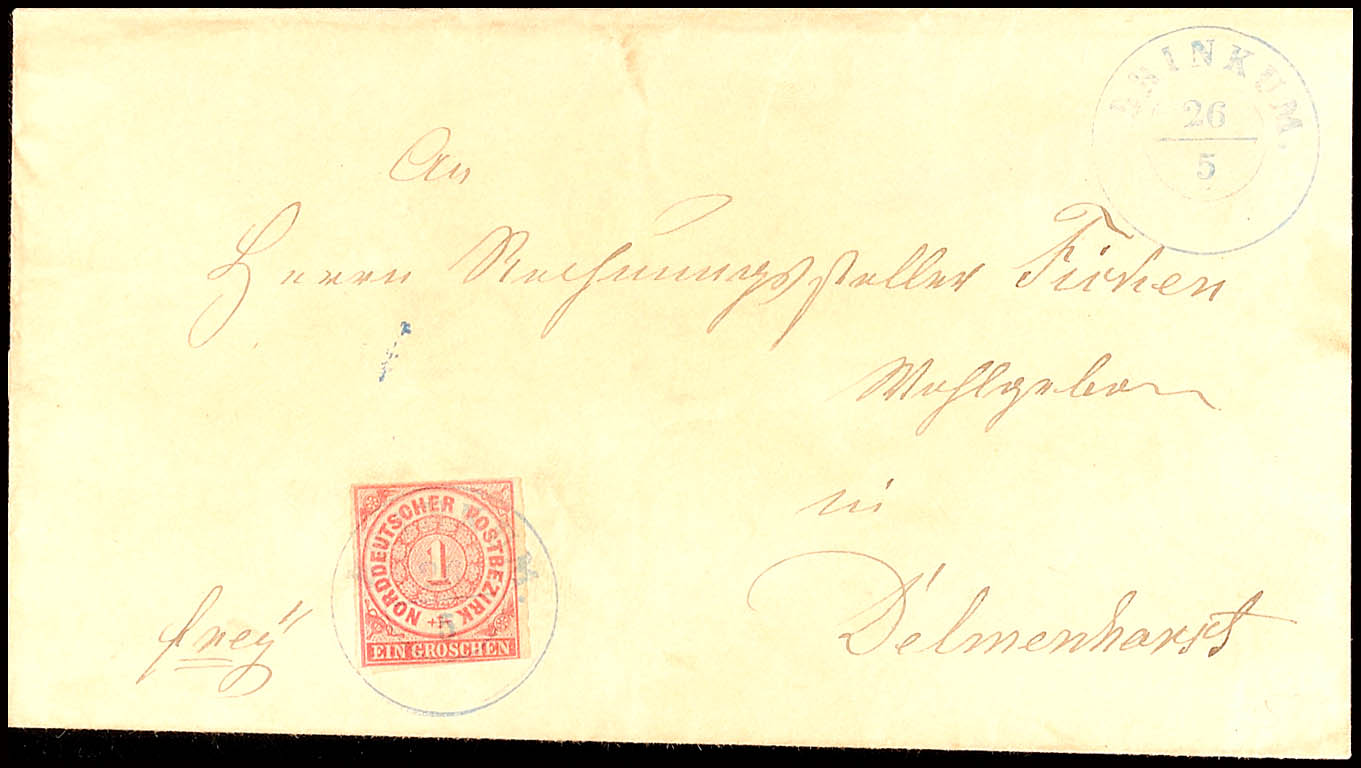 BRINKUM.
26
5
An
Herrn Rechnungssteller Ficken
Wohlgeboren
in
Delmenhorst
frey
NORDDEUTSCHER POSTBEZIRK
1
EIN GROSCHEN
5
M.